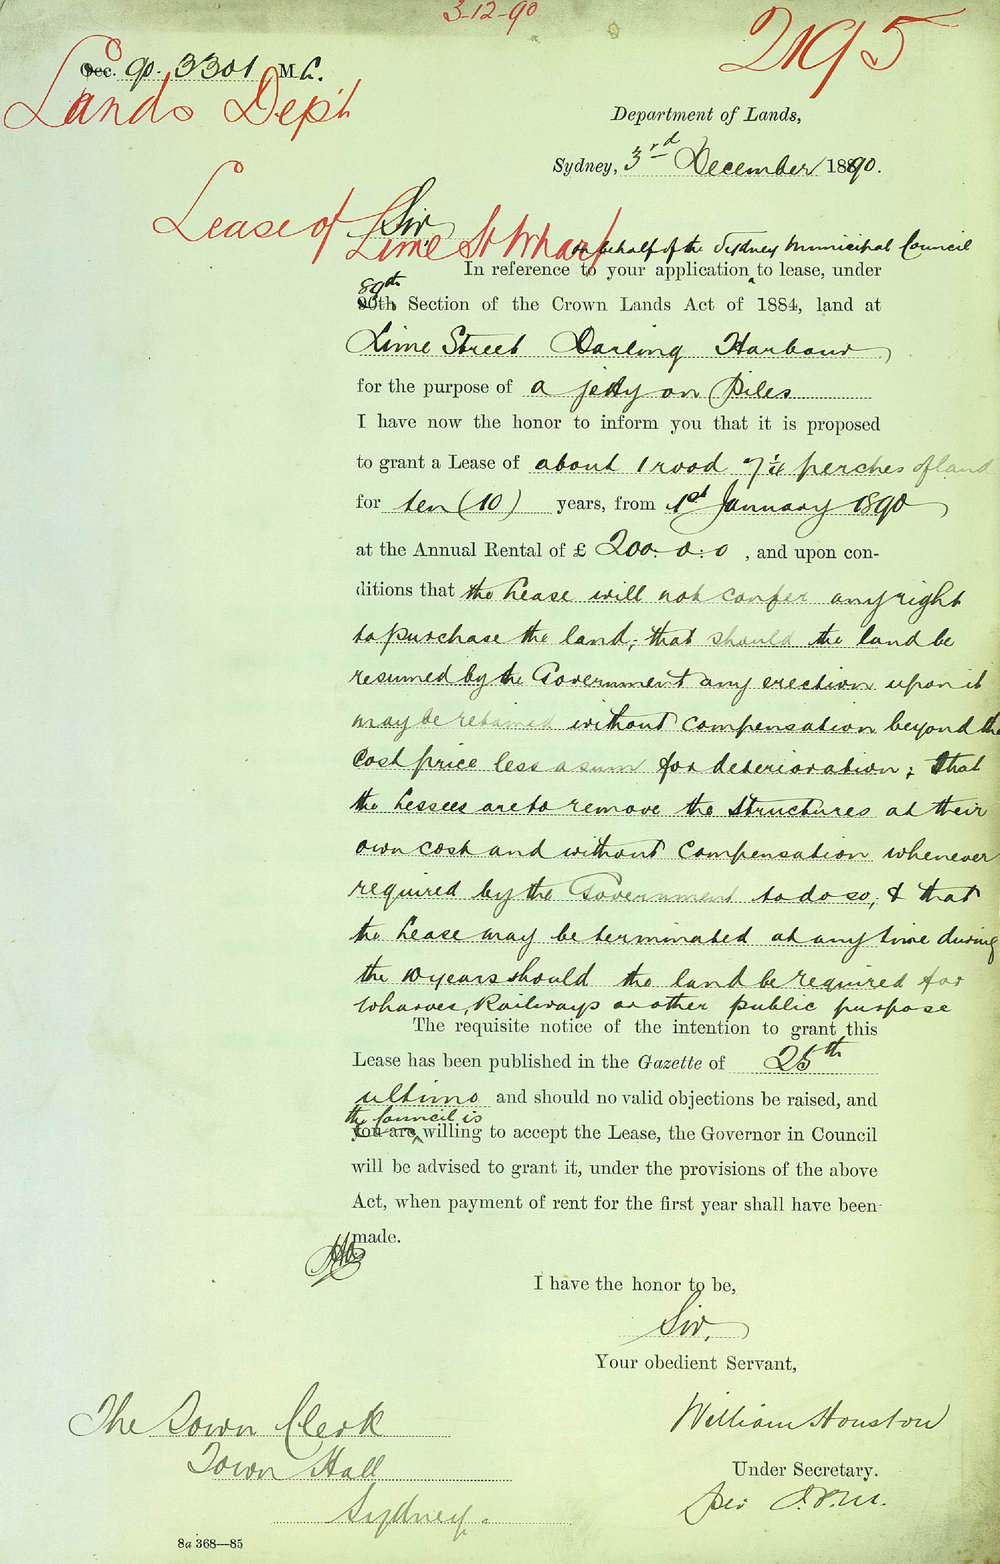 3-12-90
2195
Occ. 90. 3301 M.C.
Lands Dep't
Department of Lands,
Sydney, 3rd December 1890.
Lease of
Lime St Wharf
Sir,
on behalf of the Sydney Municipal Council
In reference to your application to lease, under
89th
90th Section of the Crown Lands Act of 1884, land at
Lime Street Darling Harbour
for the purpose of a jetty on Piles
I have now the honor to inform you that it is proposed
to grant a Lease of about 1 rood 7¼ perches of land
for ten (10) years, from 1st January 1890
at the Annual Rental of £ 200. 0. 0, and upon con-
ditions that the Lease will not confer any right
to purchase the land; that should the land be
resumed by the Government any erection upon it
may be retained without compensation beyond the
Cost price less a sum for deterioration; that
the Lessees are to remove the structures at their
own cost and without compensation whenever
required by the Government to do so, & that
the Lease may be terminated at any time during
the 10 years should the land be required for
Wharves, Railways or other public purpose
The requisite notice of the intention to grant this
Lease has been published in the Gazette of 25th
ultimo and should no valid objections be raised, and
the Council is
you are willing to accept the Lease, the Governor in Council
will be advised to grant it, under the provisions of the above
Act, when payment of rent for the first year shall have been
made.
I have the honor to be,
Sir,
Your obedient Servant,
William Houston
Under Secretary.
per
The Town Clerk
Town Hall
Sydney.
8a 368—85